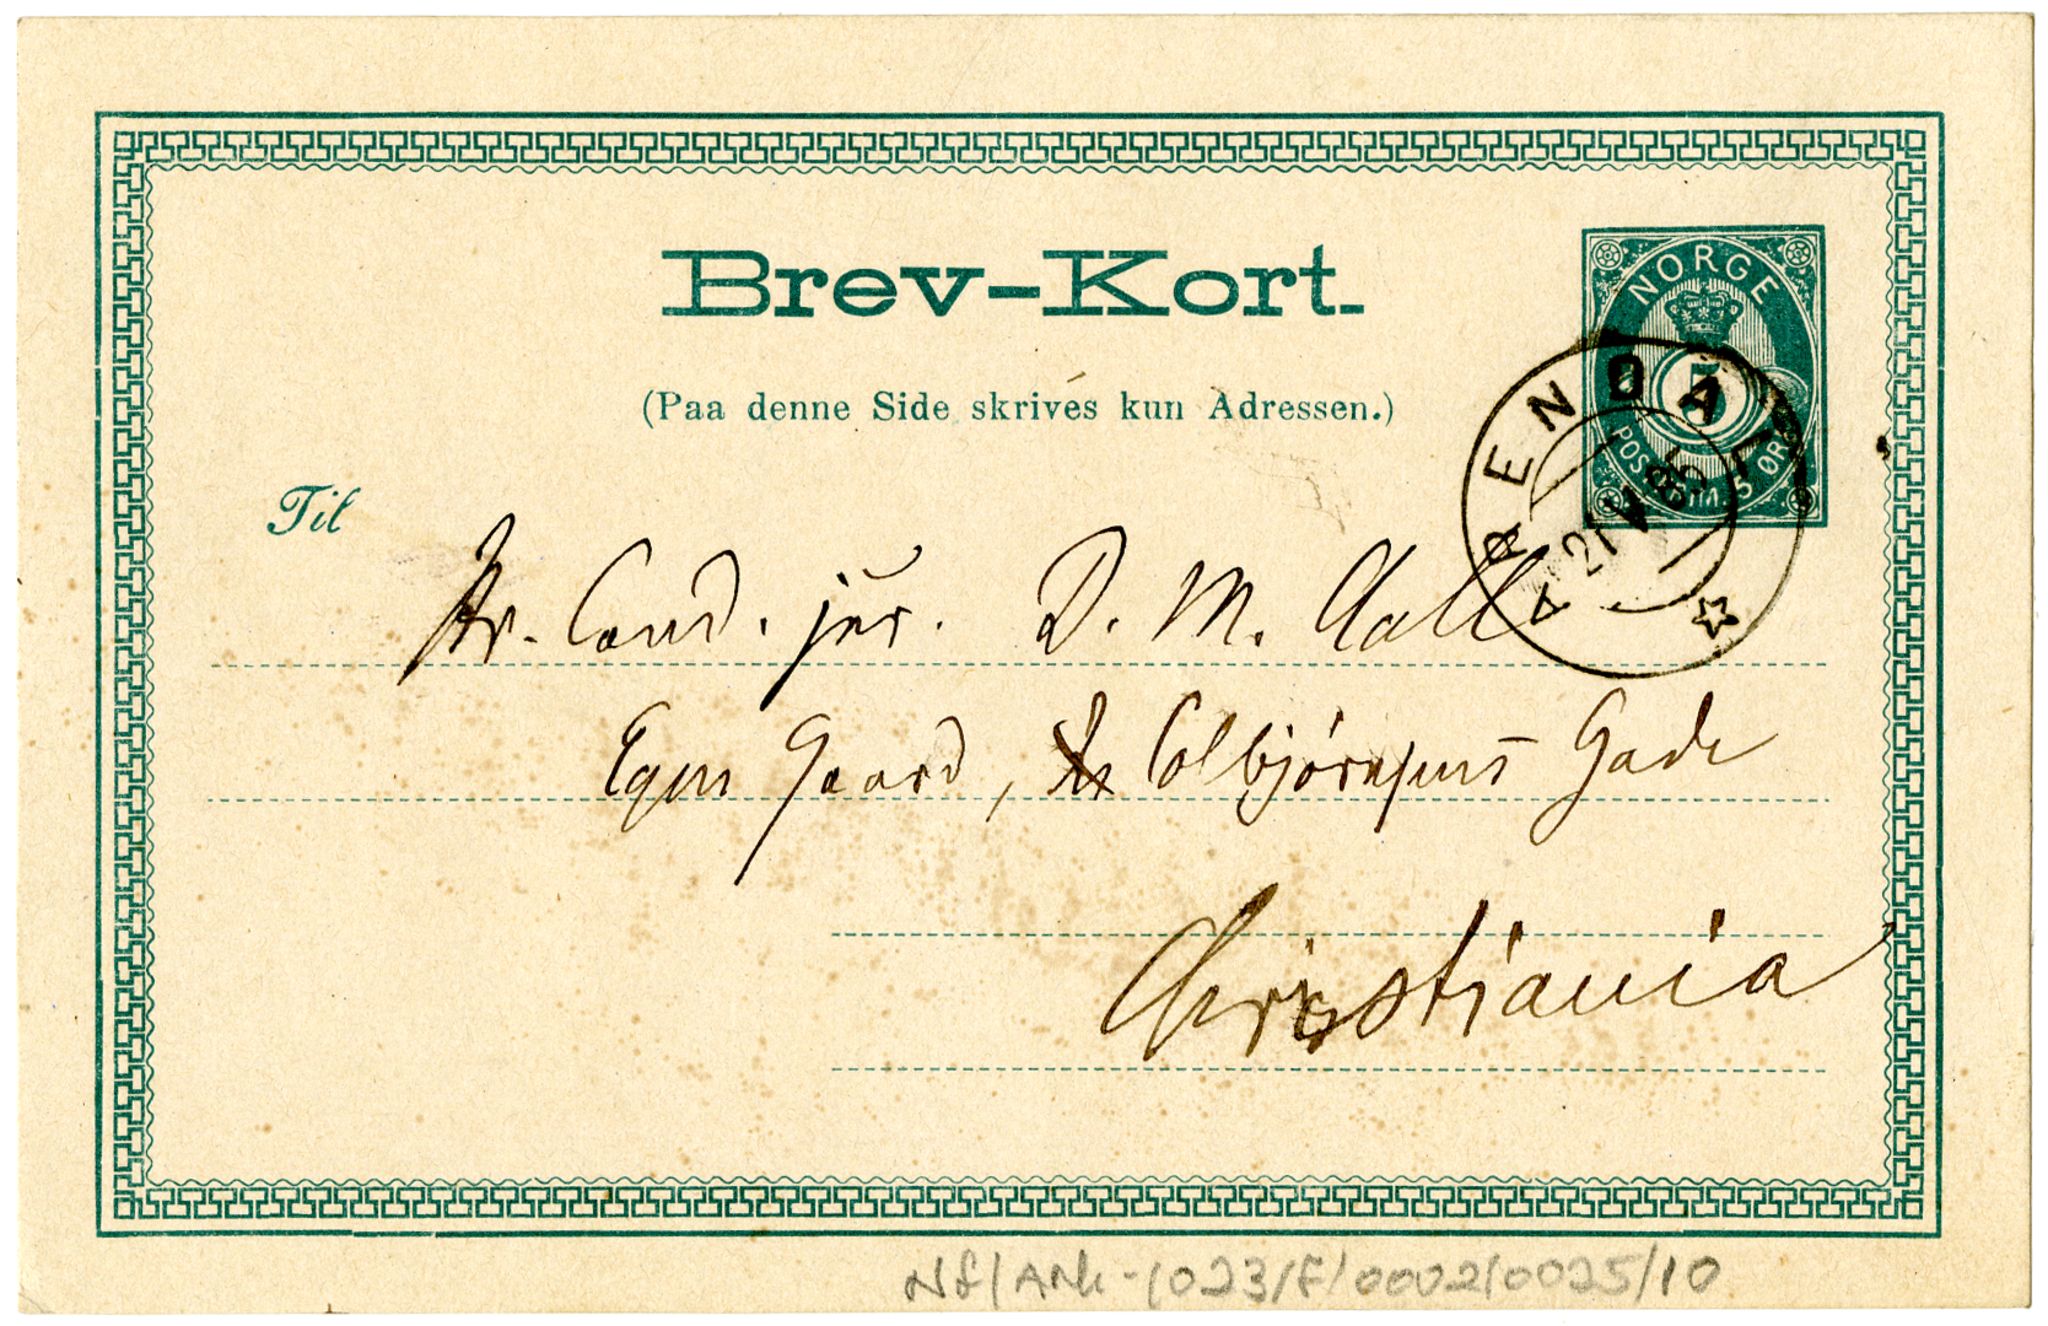 Brev-Kort.
(Paa denne Side skrives kun Adressen.)
NORGE
5
POSTFRIM. 5 ØRE
ARENDAL
21 V 85
Til
Hr. Cand. jur. D. M. Aall
Egen Gaard, Colbjørnsens Gade
Christiania
Nf/Ark-1023/F/0002/0025/10